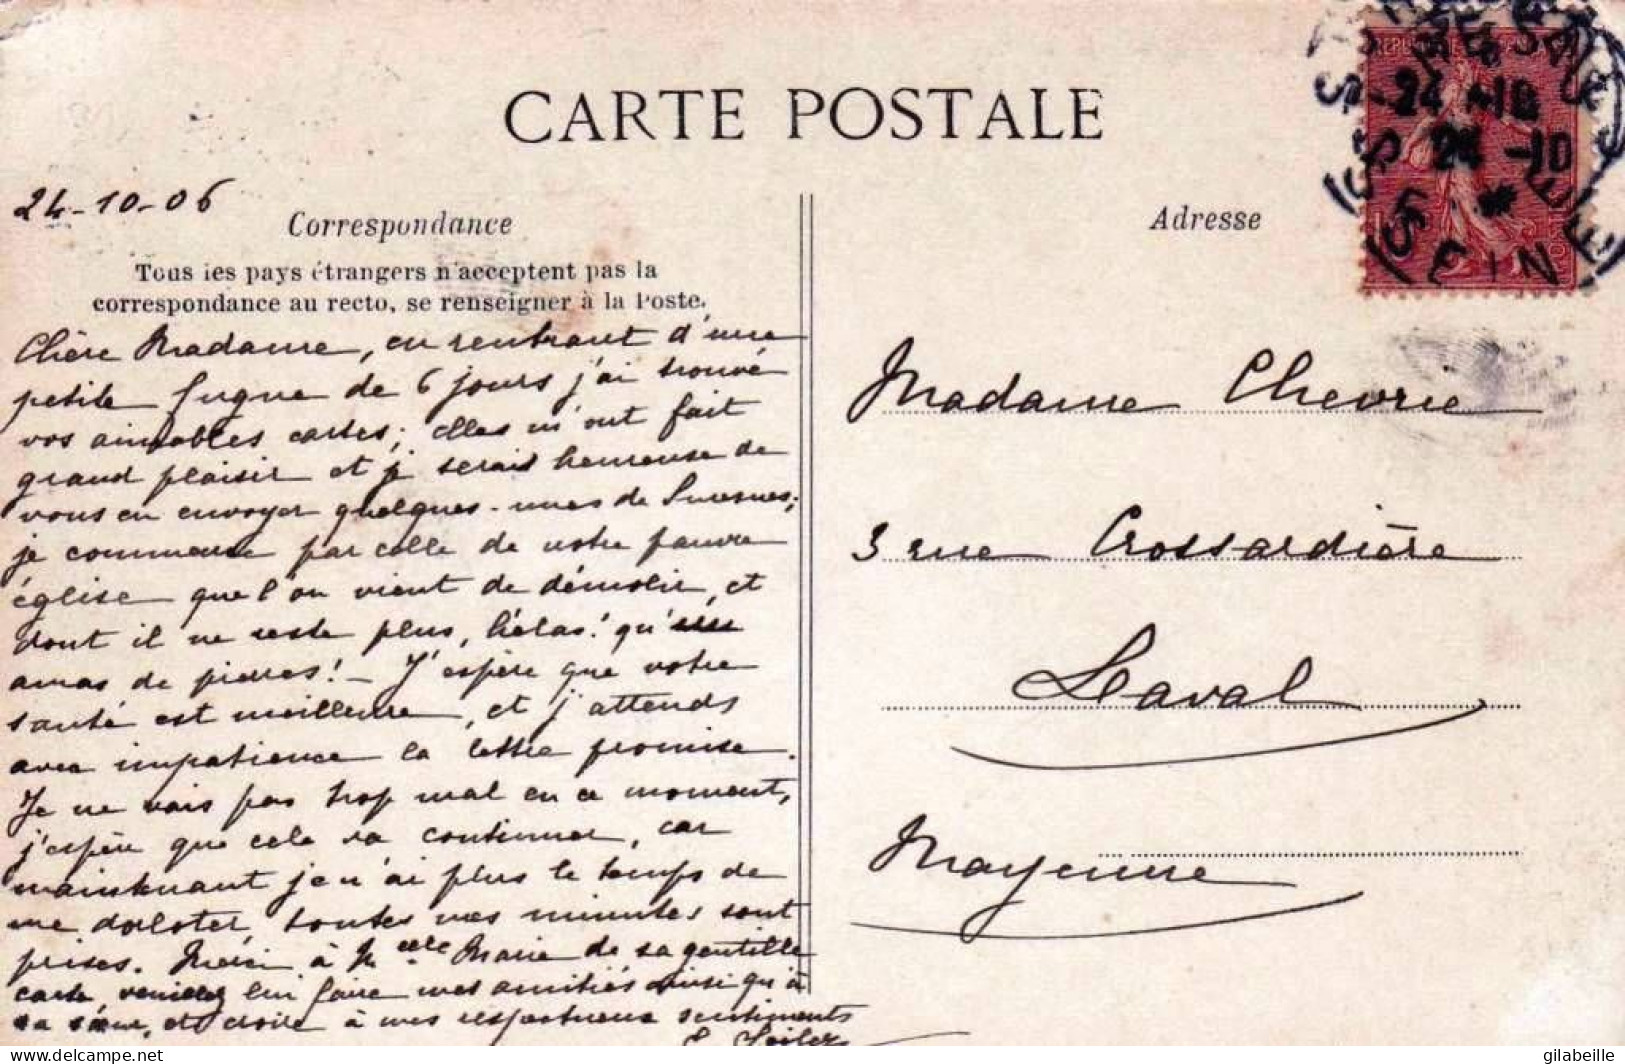 CARTE POSTALE
24-10-06
Correspondance
Tous les pays étrangers n'acceptent pas la
correspondance au recto, se renseigner à la Poste.
Chère Madame, en rentrant d'une
petite fugue de 6 jours j'ai trouvé
vos aimables cartes; elles m'ont fait
grand plaisir et je serais heureuse de
vous en envoyer quelques-unes de Suresnes;
je commence par celle de votre pauvre
église que l'on vient de démolir, et
dont il ne reste plus, hélas! qu'un
amas de pierres! - J'espère que votre
santé est meilleure, et j'attends
avec impatience la lettre promise.
Je ne vais pas trop mal en ce moment,
j'espère que cela va continuer, car
maintenant je n'ai plus le temps de
me dorloter, toutes mes minutes sont
prises. Merci à Melle Marie de sa gentille
carte, veuillez lui faire mes amitiés ainsi qu'à
sa sœur, et croire à mes respectueux sentiments
Adresse
Madame Chevrie
3 rue Crossardière
Laval
Mayenne
24 -10
24 -10
SEINE
delcampe.net
gilabeille